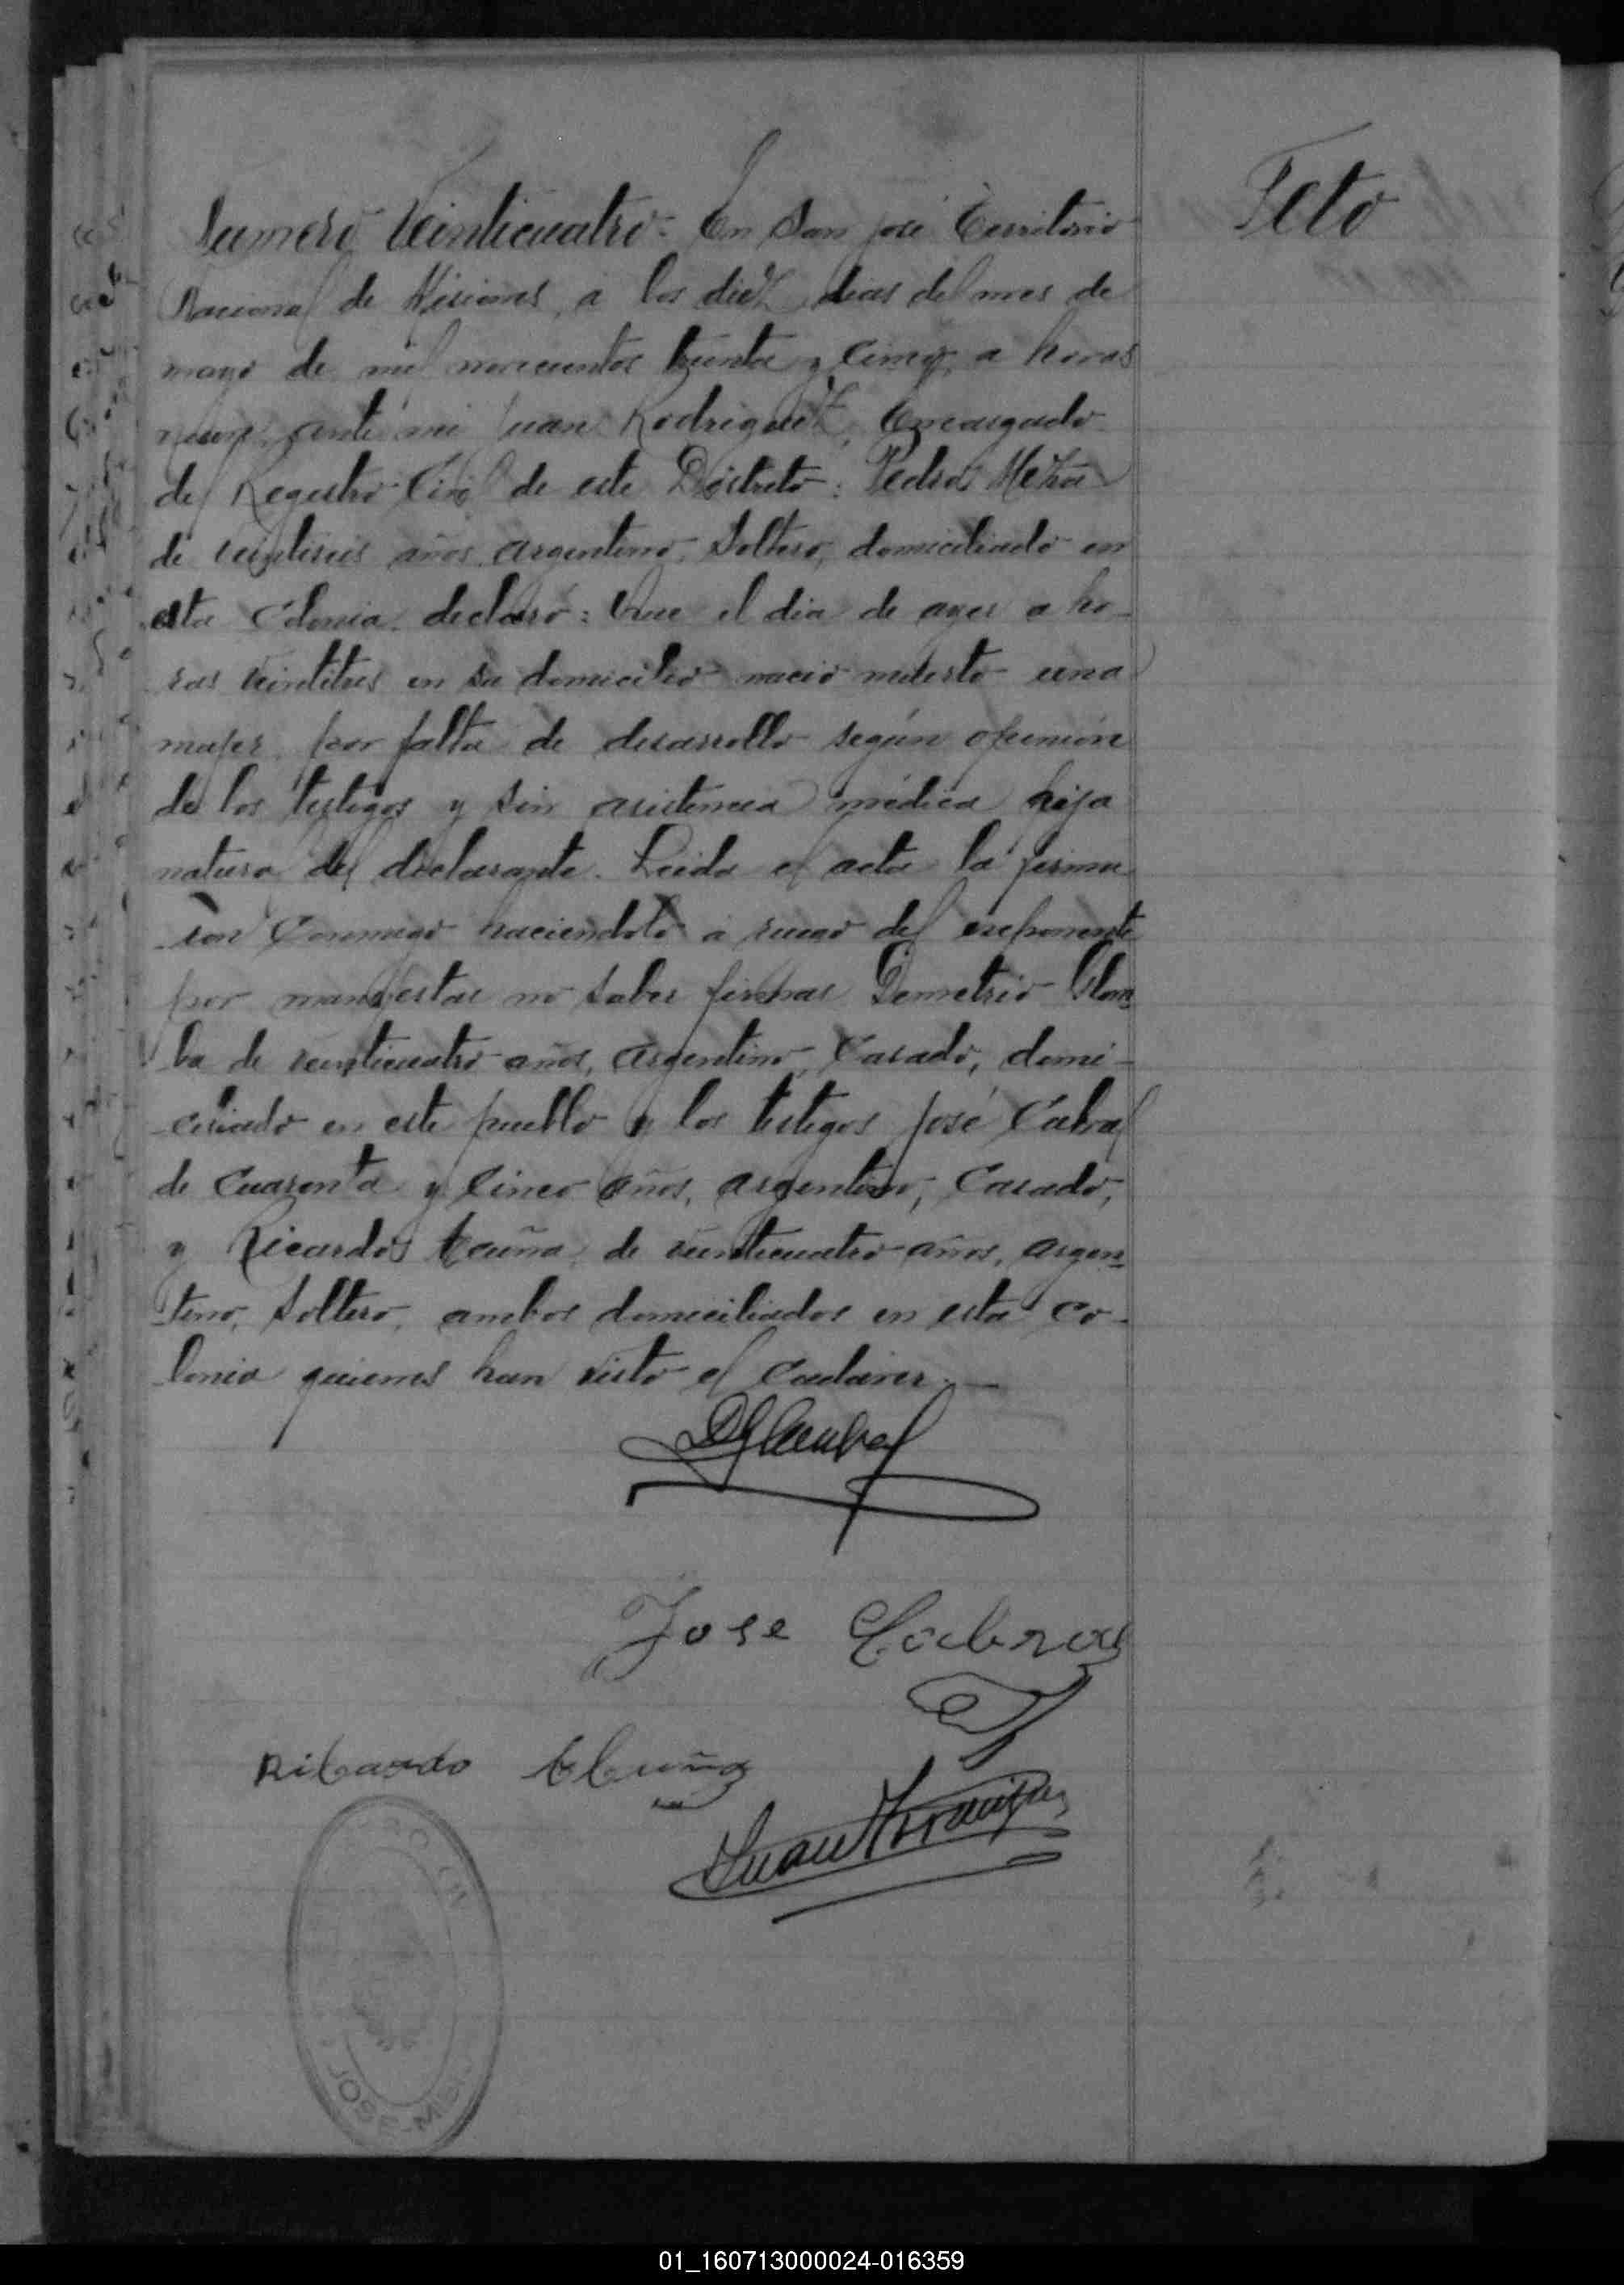 Numero Veinticuatro. En San José Territorio
Feto
Nacional de Misiones, a los diez dias del mes de
mayo de mil novecientos treinta y cinco, a horas
nueve, ante mi Juan Rodriguez, Encargado
del Registro Civil de este Distrito: Pedro Meza
de veintiseis años, argentino, soltero, domiciliado en
esta Colonia, declaró: Que el dia de ayer a ho-
ras veintitres en su domicilio nació muerto una
mujer, por falta de desarrollo según opinión
de los testigos y sin asistencia médica hija
natural del declarante. Leida el acta la firma
ron conmigo haciendolo a ruego del exponente
por manifestar no saber firmar Demetrio Glom
ba de veinticuatro años, argentino, casado, domi-
ciliado en este pueblo y los testigos José Cabral
de cuarenta y cinco años, argentino, casado,
y Ricardo Acuña, de veinticuatro años, argen-
tino, soltero, ambos domiciliados en esta co-
lonia quienes han visto el cadáver.—
Jose Cabral
Ricardo Acuña
Juan
JOSE-MIS
01_160713000024-016359